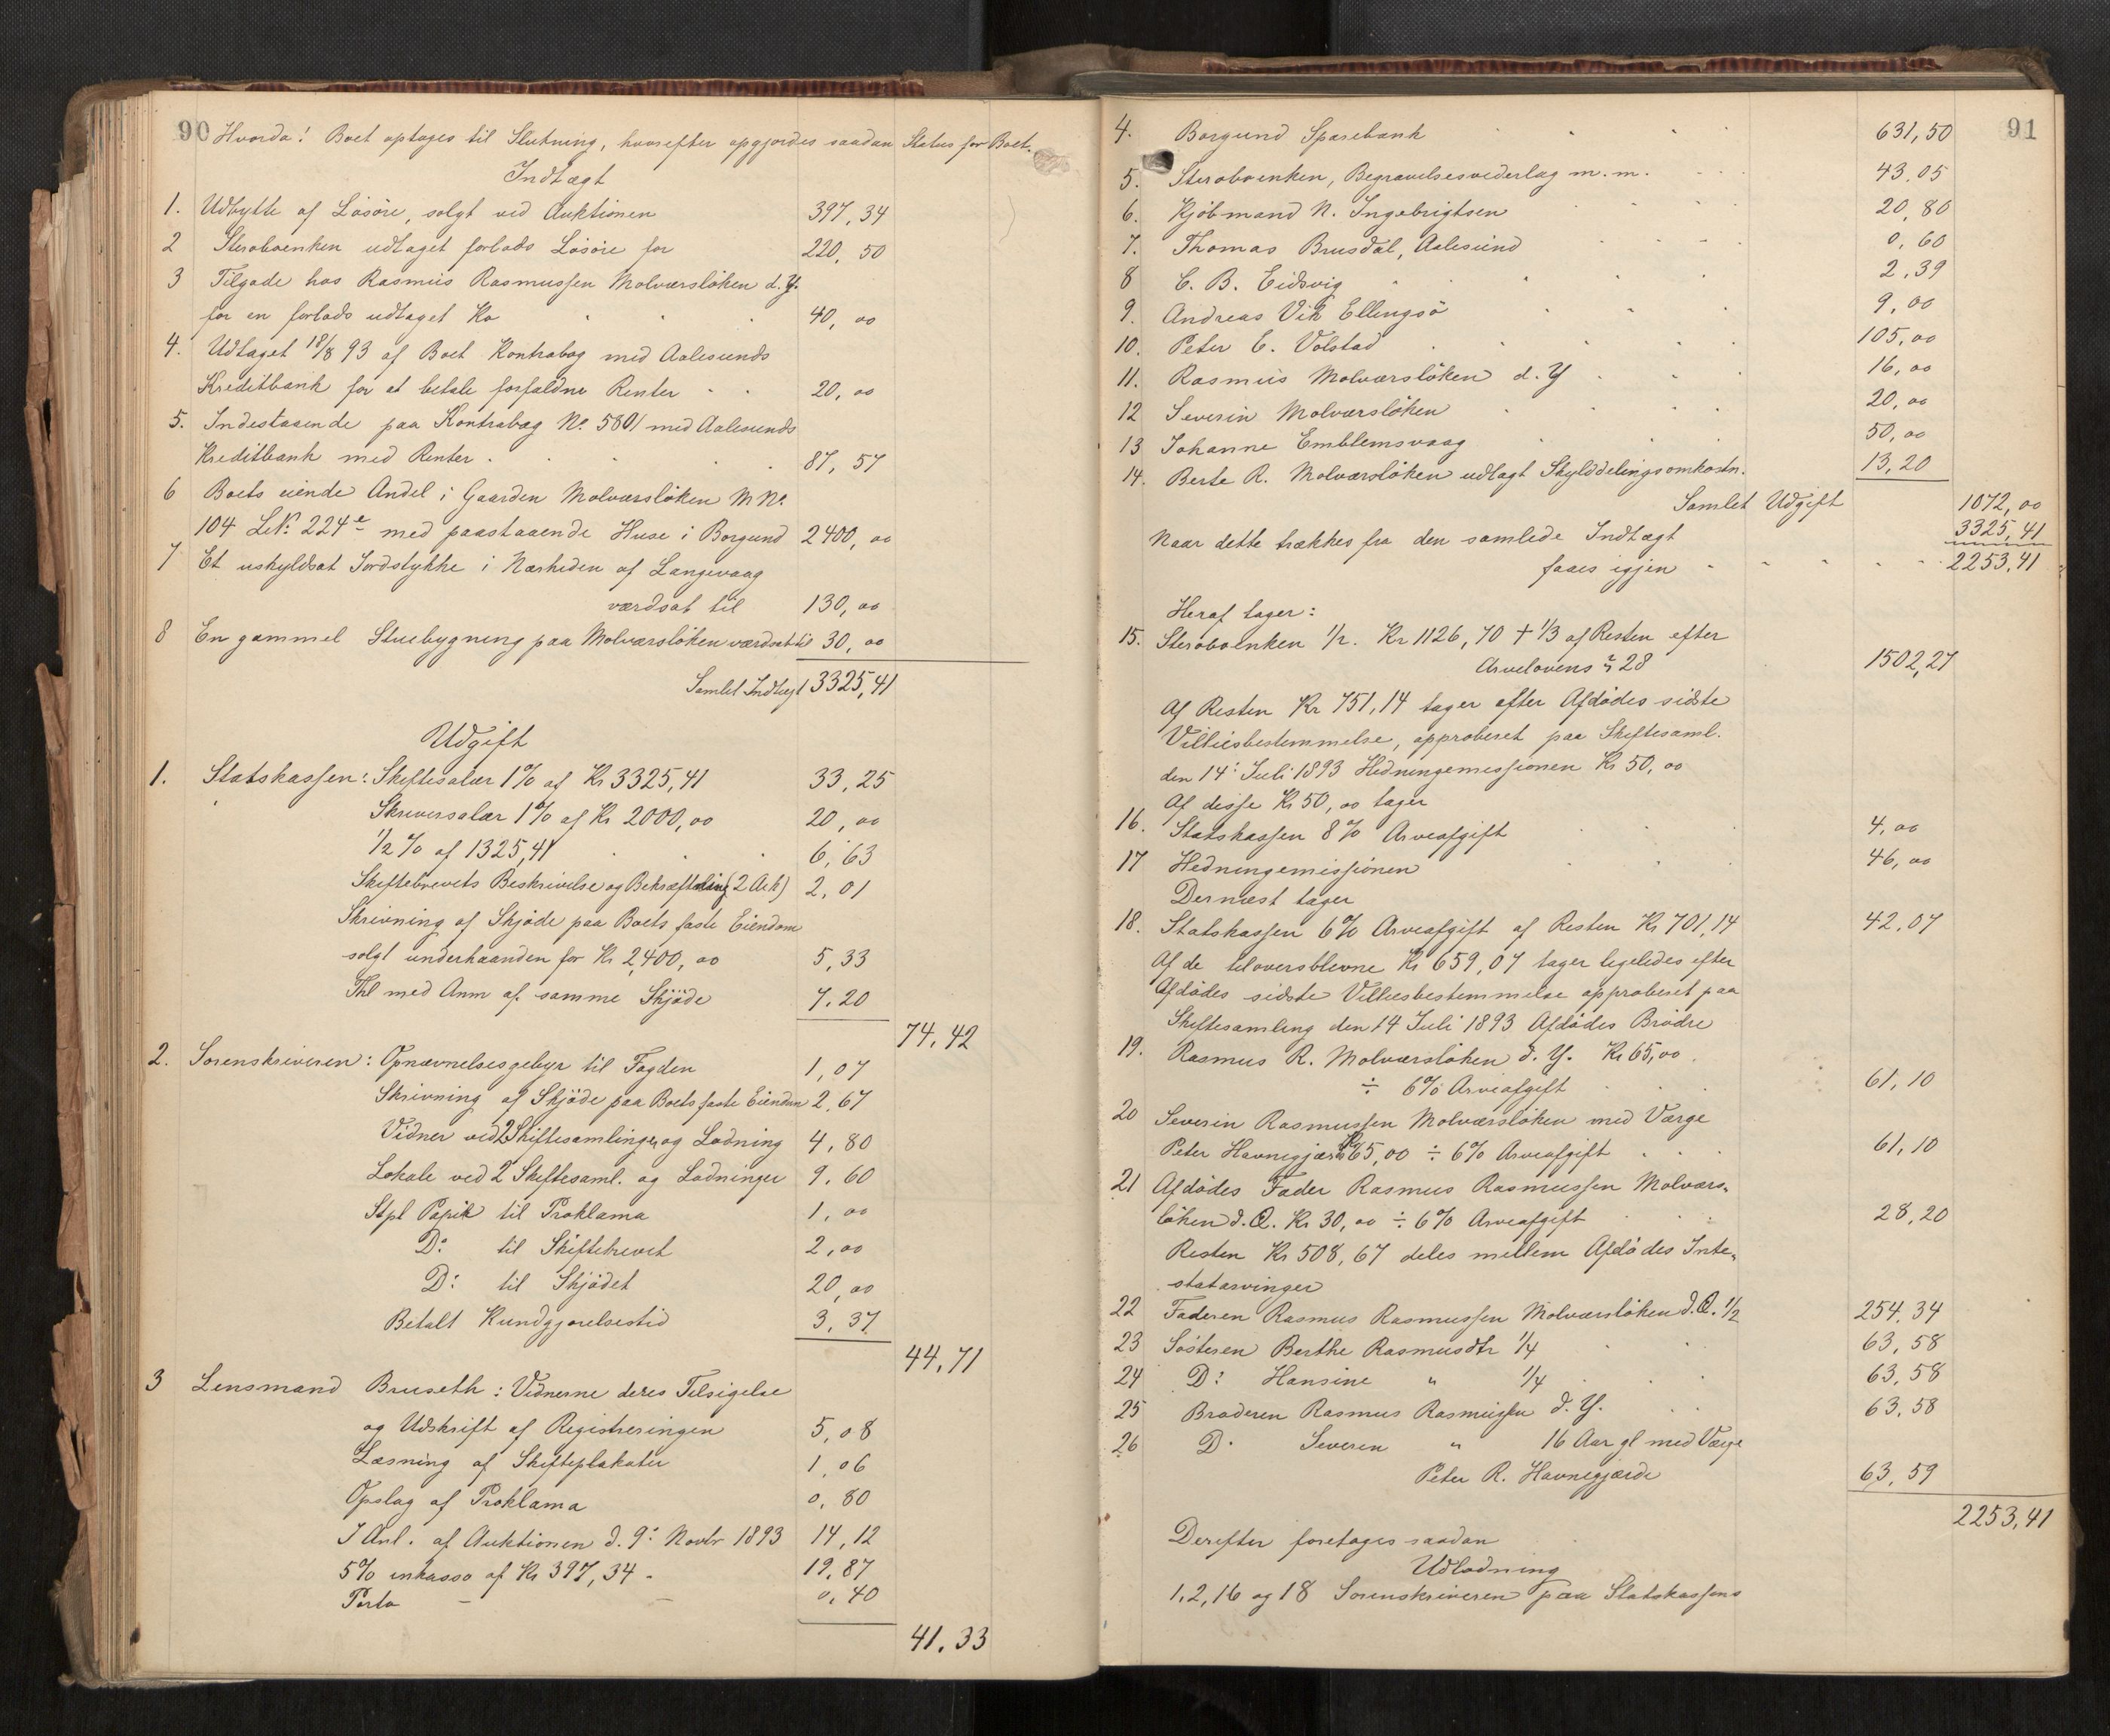 90
Hvorda! Boet optages til Slutning, hvorefter opgjordes saadan Status for Boet.
Indtægt
1. Udbytte af Løsøre, solgt ved Auktionen 397,34
2 Sterboenken udtaget forlods Løsøre for 220,50
3 Tilgode hos Rasmus Rasmussen Molværsløken d. Y.
for en forlods udtaget Ko 40,00
4. Udtaget 18/8 93 af Boet Kontrabog med Aalesunds
Kreditbank for at betale forfaldne Renter 20,00
5. Indestaaende paa Kontrabog No. 5801 med Aalesunds
Kreditbank med Renter 87,57
6 Boets eiende Andel i Gaarden Molværsløken M No.
104 LNo. 224e med paastaaende Huse i Borgund 2400,00
7 Et uskyldsat Jordstykke i Nærheden af Langevaag
værdsat til 130,00
8 En gammel Stuebygning paa Molværsløken værdsat til 30,00
Samlet Indtægt 3325,41
Udgift
1. Statskassen: Skiftesalær 1% af Kr 3325,41 33,25
Skriversalær 1% af Kr 2000,00 20,00
1/2 % af 1325,41 6,63
Skiftebrevets Beskrivelse og Bekræftning (2 Ark) 2,01
Skrivning af Skjøde paa Boets faste Eiendom
solgt underhaanden for Kr 2400,00 5,33
Thl med Anm af samme Skjøde 7,20
74,42
2. Sorenskriveren: Opnævnelsesgebyr til Fogden 1,07
Skrivning af Skjøde paa Boets faste Eiendom 2,67
Vidner ved 2 Skiftesamlinger og Lodning 4,80
Lokale ved 2 Skiftesaml. og Lodninger 9,60
Stpl Papir til Proklama 1,00
Do: til Skiftebrevet 2,00
Do: til Skjødet 20,00
Betalt Kundgjørelsestid 3,37
44,71
3 Lensmand Bruseth: Vidnerne deres Tilsigelse
og Udskrift af Registreringen 5,08
Læsning af Skifteplakater 1,06
Opslag af Proklama 0,80
I Anl. af Auktionen d. 9: Novbr 1893 14,12
5% inkasso af Kr 397,34 - 19,87
Porto 0,40
41,33
91
4. Borgund Sparebank 631,50
5. Sterboenken, Begravelsesvederlag m. m. 43,05
6. Kjøbmand N. Ingebrigtsen 20,80
7. Thomas Brusdal, Aalesund 0,60
8 C. B. Eidsvig 2,39
9. Andreas Vik Ellingsø 9,00
10. Peter E. Volstad 105,00
11. Rasmus Molværsløken d. Y 16,00
12 Severin Molværsløken 20,00
13 Johanne Emblemsvaag 50,00
14. Berte R. Molværsløken udlagt Skylddelingsomkostn. 13,20
Samlet Udgift 1072,00
Naar dette trækkes fra den samlede Indtægt 3325,41
faaes igjen 2253,41
Heraf tager:
15. Sterboenken 1/2. Kr 1126,70 + 1/3 af Resten efter
Arvelovens § 28 1502,27
Af Resten Kr 751,14 tager efter Afdødes sidste
Villiesbestemmelse, approberet paa Skiftesaml.
den 14: Juli 1893 Hedningemissionen Kr 50,00
Af disse Kr 50,00 tager
16. Statskassen 8% Arveafgift 4,00
17 Hedningemissionen 46,00
Dernæst tager
18. Statskassen 6% Arveafgift af Resten Kr 701,14 42,07
Af de tiloversblevne Kr 659,07 tager ligeledes efter
Afdødes sidste Villiesbestemmelse approberet paa
Skiftesamling den 14 Juli 1893 Afdødes Brødre
19. Rasmus R. Molværsløken d. Y. Kr 65,00
÷ 6% Arveafgift 61,10
20 Severin Rasmussen Molværsløken med Værge
Peter Havnegjærde Kr 65,00 ÷ 6% Arveafgift 61,10
21 Afdødes Fader Rasmus Rasmussen Molværs-
løken d. Æ. Kr 30,00 ÷ 6% Arveafgift 28,20
Resten Kr 508,67 deles mellem Afdødes Inte-
statarvinger
22 Faderen Rasmus Rasmussen Molværsløken d. Æ. 1/2 254,34
23 Søsteren Berthe Rasmusdtr 1/4 63,58
24 Do: Hansine " 1/4 63,58
25 Broderen Rasmus Rasmussen d. Y. 63,58
26 Do. Severen " 16 Aar gl med Værge
Peter R. Havnegjærde 63,59
2253,41
Derefter foretages saadan
Udlodning
1, 2, 16 og 18 Sorenskriveren paa Statskassens